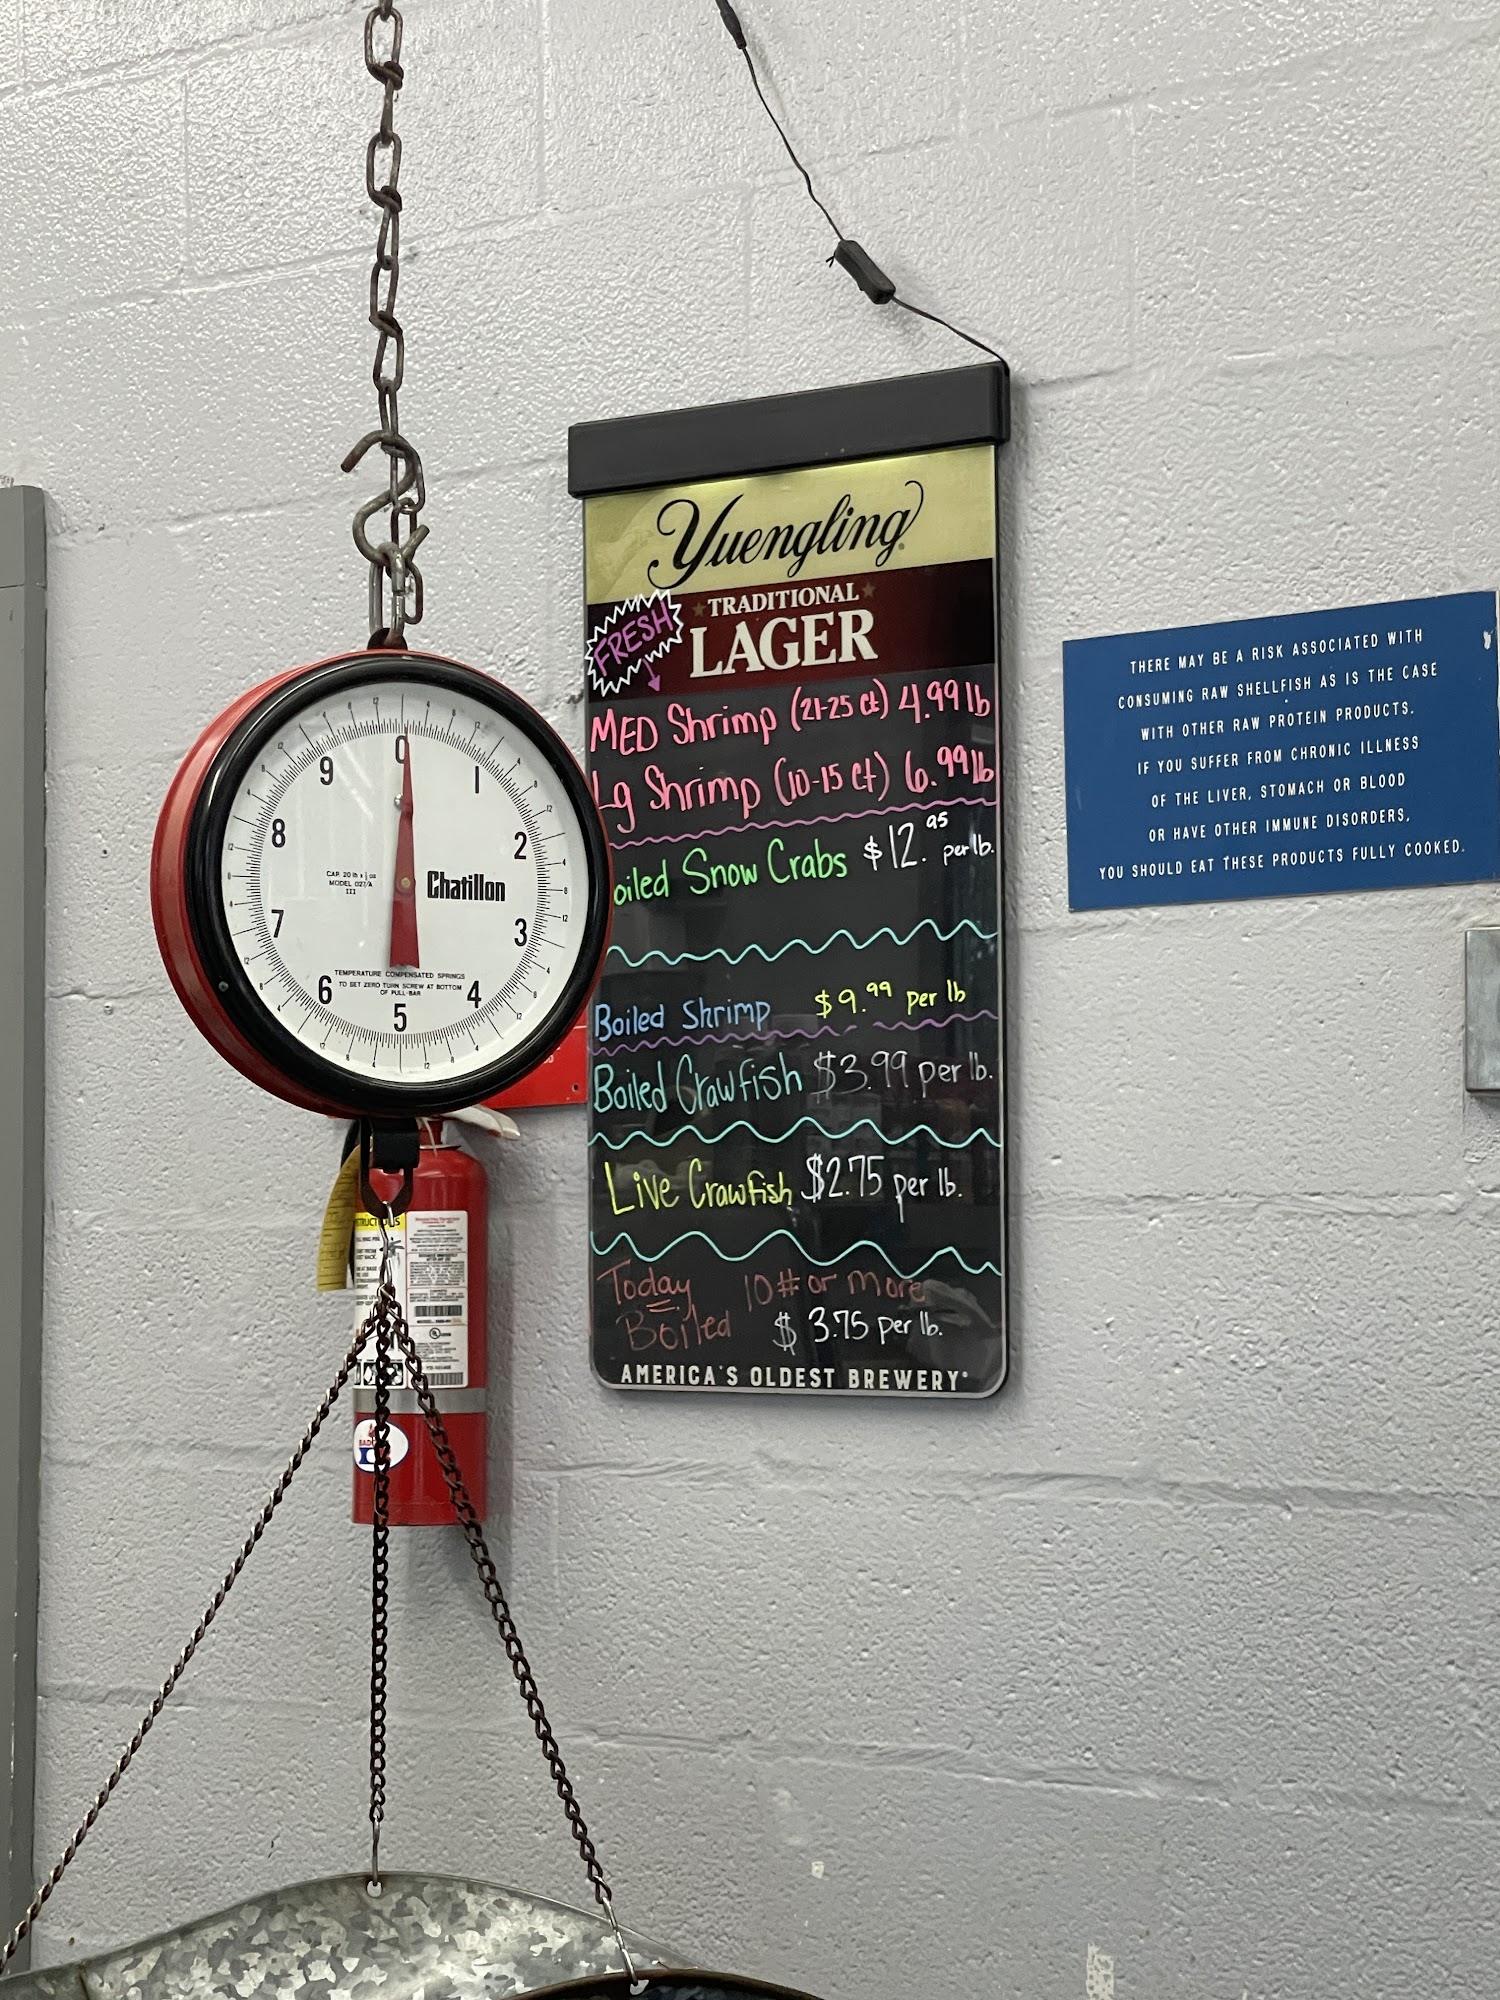 Yuengling
TRADITIONAL
LAGER
FRESH
MED Shrimp (21-25 ct) 4.99 lb
Lg Shrimp (10-15 ct) 6.99 lb
oiled Snow Crabs $12.95 per lb.
Boiled Shrimp $9.99 per lb
Boiled Crawfish $3.99 per lb.
Live Crawfish $2.75 per lb.
Today 10# or more
Boiled $3.75 per lb.
AMERICA'S OLDEST BREWERY®
0
1
2
3
4
5
6
7
8
9
Chatillon
MODEL 027/A
III
TEMPERATURE COMPENSATED SPRINGS
TO SET ZERO TURN SCREW AT BOTTOM
OF PULL-BAR
THERE MAY BE A RISK ASSOCIATED WITH
CONSUMING RAW SHELLFISH AS IS THE CASE
WITH OTHER RAW PROTEIN PRODUCTS.
IF YOU SUFFER FROM CHRONIC ILLNESS
OF THE LIVER, STOMACH OR BLOOD
OR HAVE OTHER IMMUNE DISORDERS,
YOU SHOULD EAT THESE PRODUCTS FULLY COOKED.